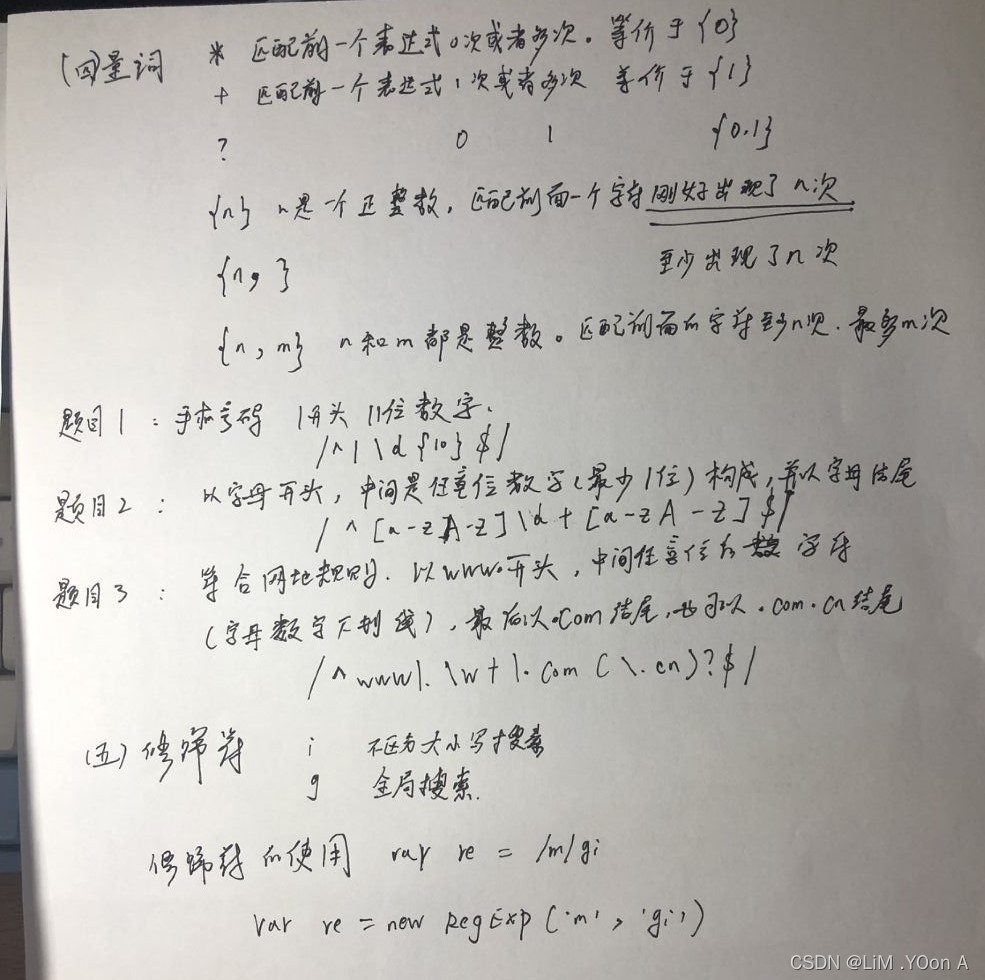 (四)量词 * 匹配前一个表达式0次或者多次。等价于{0}
+ 匹配前一个表达式1次或者多次 等价于{1}
? 0 1 {0.1}
{n} n是一个正整数,匹配前面一个字符刚好出现了n次
至少出现了n次
{n, }
{n, m} n和m都是整数。匹配前面的字符至少n次.最多m次
题目1:手机号码 1开头 11位数字.
/^1\d{10}$/
题目2:以字母开头,中间是任意位数字(最少1位)构成,并以字母结尾
/^[a-zA-Z]\d+[a-zA-Z]$/
题目3:符合网址规则.以www.开头,中间任意位为字符
(字母数字下划线),最后以.com结尾,也可以.com.cn结尾
/^www\.\w+\.com(\.cn)?$/
(五)修饰符 i 不区分大小写搜索
g 全局搜索.
修饰符的使用 var re = /m/gi
var re = new RegExp('m', 'gi')
CSDN @LiM .YOon A